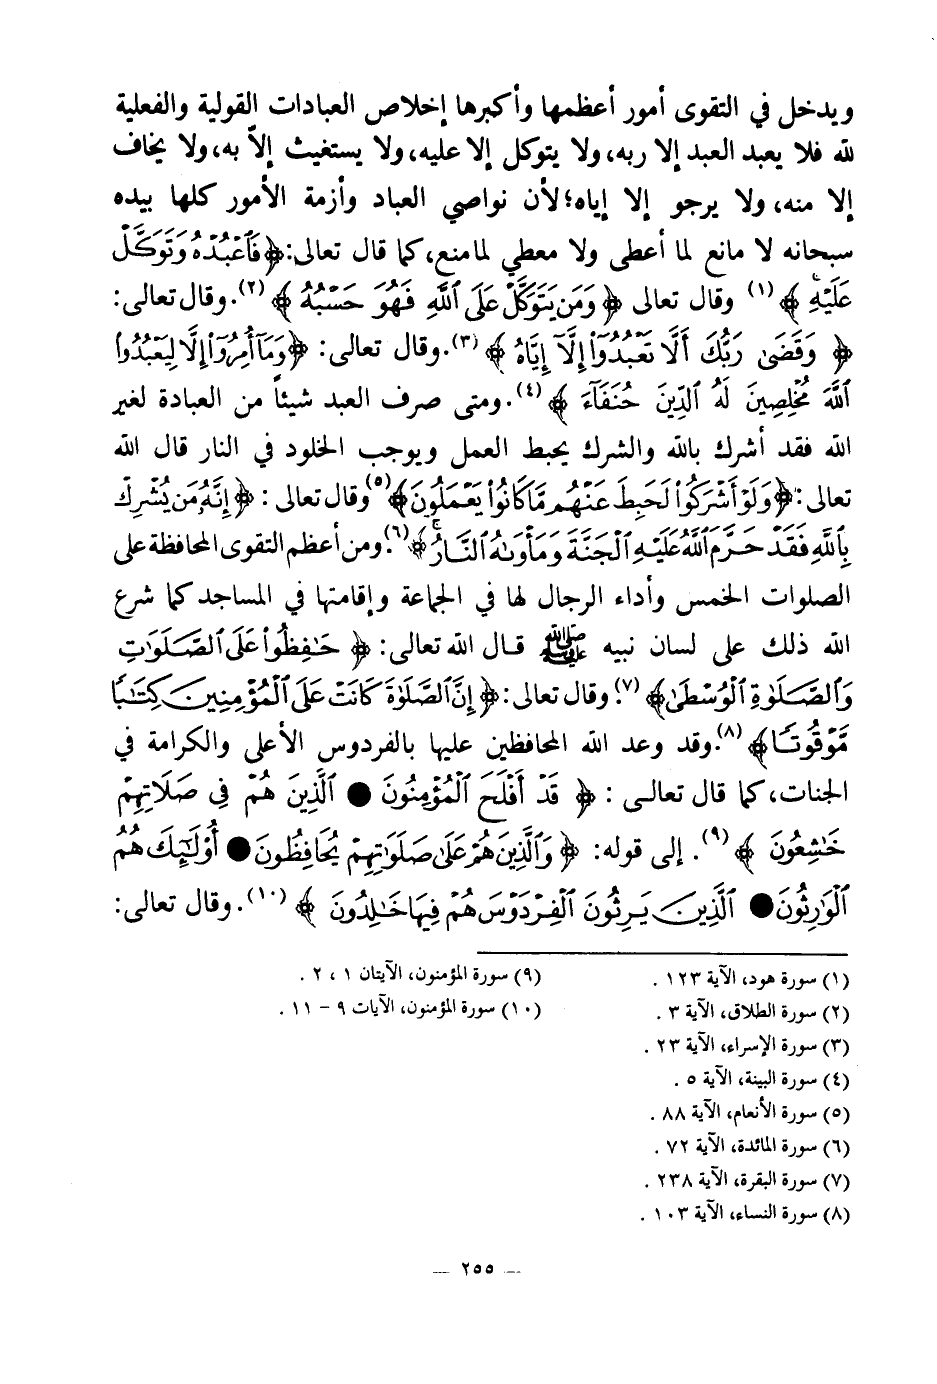 ويدخل في التقوى أمور أعظمها وأكبرها إخلاص العبادات القولية والفعلية
لله فلا يعبد العبد إلا ربه، ولا يتوكل إلا عليه، ولا يستغيث إلاّ به، ولا يخاف
إلا منه، ولا يرجو إلا إياه؛ لأن نواصي العباد وأزمة الأمور كلها بيده
سبحانه لا مانع لما أعطى ولا معطي لما منع، كما قال تعالى: ﴿فَٱعۡبُدۡهُ وَتَوَكَّلۡ
عَلَيۡهِۚ﴾ (١) وقال تعالى ﴿وَمَن يَتَوَكَّلۡ عَلَى ٱللَّهِ فَهُوَ حَسۡبُهُۥ﴾ (٢). وقال تعالى:
﴿وَقَضَىٰ رَبُّكَ أَلَّا تَعۡبُدُوٓاْ إِلَّآ إِيَّاهُ﴾ (٣). وقال تعالى: ﴿وَمَآ أُمِرُوٓاْ إِلَّا لِيَعۡبُدُواْ
ٱللَّهَ مُخۡلِصِينَ لَهُ ٱلدِّينَ حُنَفَآءَ﴾ (٤). ومتى صرف العبد شيئاً من العبادة لغير
الله فقد أشرك بالله والشرك يحبط العمل ويوجب الخلود في النار قال الله
تعالى: ﴿وَلَوۡ أَشۡرَكُواْ لَحَبِطَ عَنۡهُم مَّا كَانُواْ يَعۡمَلُونَ﴾ (٥) وقال تعالى: ﴿إِنَّهُۥ مَن يُشۡرِكۡ
بِٱللَّهِ فَقَدۡ حَرَّمَ ٱللَّهُ عَلَيۡهِ ٱلۡجَنَّةَ وَمَأۡوَىٰهُ ٱلنَّارُۖ﴾ (٦). ومن أعظم التقوى المحافظة على
الصلوات الخمس وأداء الرجال لها في الجماعة وإقامتها في المساجد كما شرع
الله ذلك على لسان نبيه ﷺ قال الله تعالى: ﴿حَٰفِظُواْ عَلَى ٱلصَّلَوَٰتِ
وَٱلصَّلَوٰةِ ٱلۡوُسۡطَىٰ﴾ (٧). وقال تعالى: ﴿إِنَّ ٱلصَّلَوٰةَ كَانَتۡ عَلَى ٱلۡمُؤۡمِنِينَ كِتَٰبٗا
مَّوۡقُوتٗا﴾ (٨). وقد وعد الله المحافظين عليها بالفردوس الأعلى والكرامة في
الجنات، كما قال تعالى: ﴿قَدۡ أَفۡلَحَ ٱلۡمُؤۡمِنُونَ ● ٱلَّذِينَ هُمۡ فِي صَلَاتِهِمۡ
خَٰشِعُونَ﴾ (٩). إلى قوله: ﴿وَٱلَّذِينَ هُمۡ عَلَىٰ صَلَوَٰتِهِمۡ يُحَافِظُونَ ● أُوْلَٰٓئِكَ هُمُ
ٱلۡوَٰرِثُونَ ● ٱلَّذِينَ يَرِثُونَ ٱلۡفِرۡدَوۡسَ هُمۡ فِيهَا خَٰلِدُونَ﴾ (١٠). وقال تعالى:
(١) سورة هود، الآية ١٢٣ .
(٢) سورة الطلاق، الآية ٣ .
(٣) سورة الإسراء، الآية ٢٣ .
(٤) سورة البينة، الآية ٥ .
(٥) سورة الأنعام، الآية ٨٨ .
(٦) سورة المائدة، الآية ٧٢ .
(٧) سورة البقرة، الآية ٢٣٨ .
(٨) سورة النساء، الآية ١٠٣ .
(٩) سورة المؤمنون، الآيتان ١ ، ٢ .
(١٠) سورة المؤمنون، الآيات ٩ - ١١ .
— ٢٥٥ —